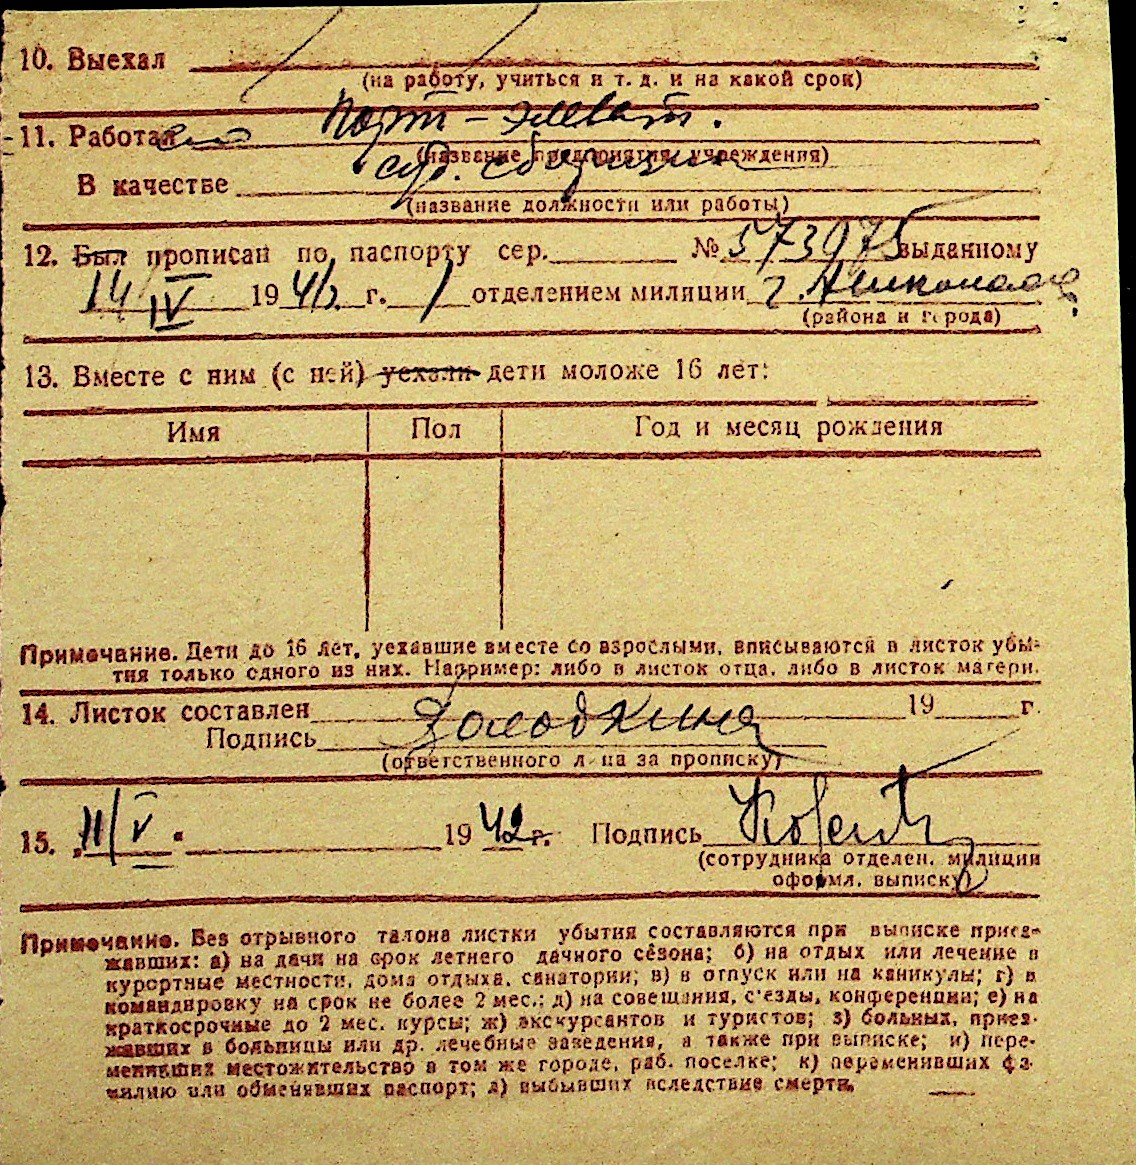 10. Выехал
(на работу, учиться и т. д. и на какой срок)
11. Работал Порт-Элеват.
(название предприятия, учреждения)
В качестве
(название должности или работы)
12. Был прописан по паспорту сер. № 573975 выданному
14/IV 1942 г. 1 отделением милиции г. Николаев
(района и города)
13. Вместе с ним (с ней) уехали дети моложе 16 лет:
Имя Пол Год и месяц рождения
Примечание. Дети до 16 лет, уехавшие вместе со взрослыми, вписываются в листок убы-
тия только одного из них. Например: либо в листок отца, либо в листок матери.
14. Листок составлен 19 г.
Подпись
(ответственного лица за прописку)
15. „11/V“ 1942 г. Подпись
(сотрудника отделен. милиции
оформл. выписку)
Примечание. Без отрывного талона листки убытия составляются при выписке приез-
жавших: а) на дачи на срок летнего дачного сезона; б) на отдых или лечение в
курортные местности, дома отдыха, санатории; в) в отпуск или на каникулы; г) в
командировку на срок не более 2 мес.; д) на совещания, с'езды, конференции; е) на
краткосрочные до 2 мес. курсы; ж) экскурсантов и туристов; з) больных, приез-
жавших в больницы или др. лечебные заведения, а также при выписке; и) пере-
менивших местожительство в том же городе, раб. поселке; к) переменивших фа-
милию или обменявших паспорт; л) выбывших вследствие смерти.